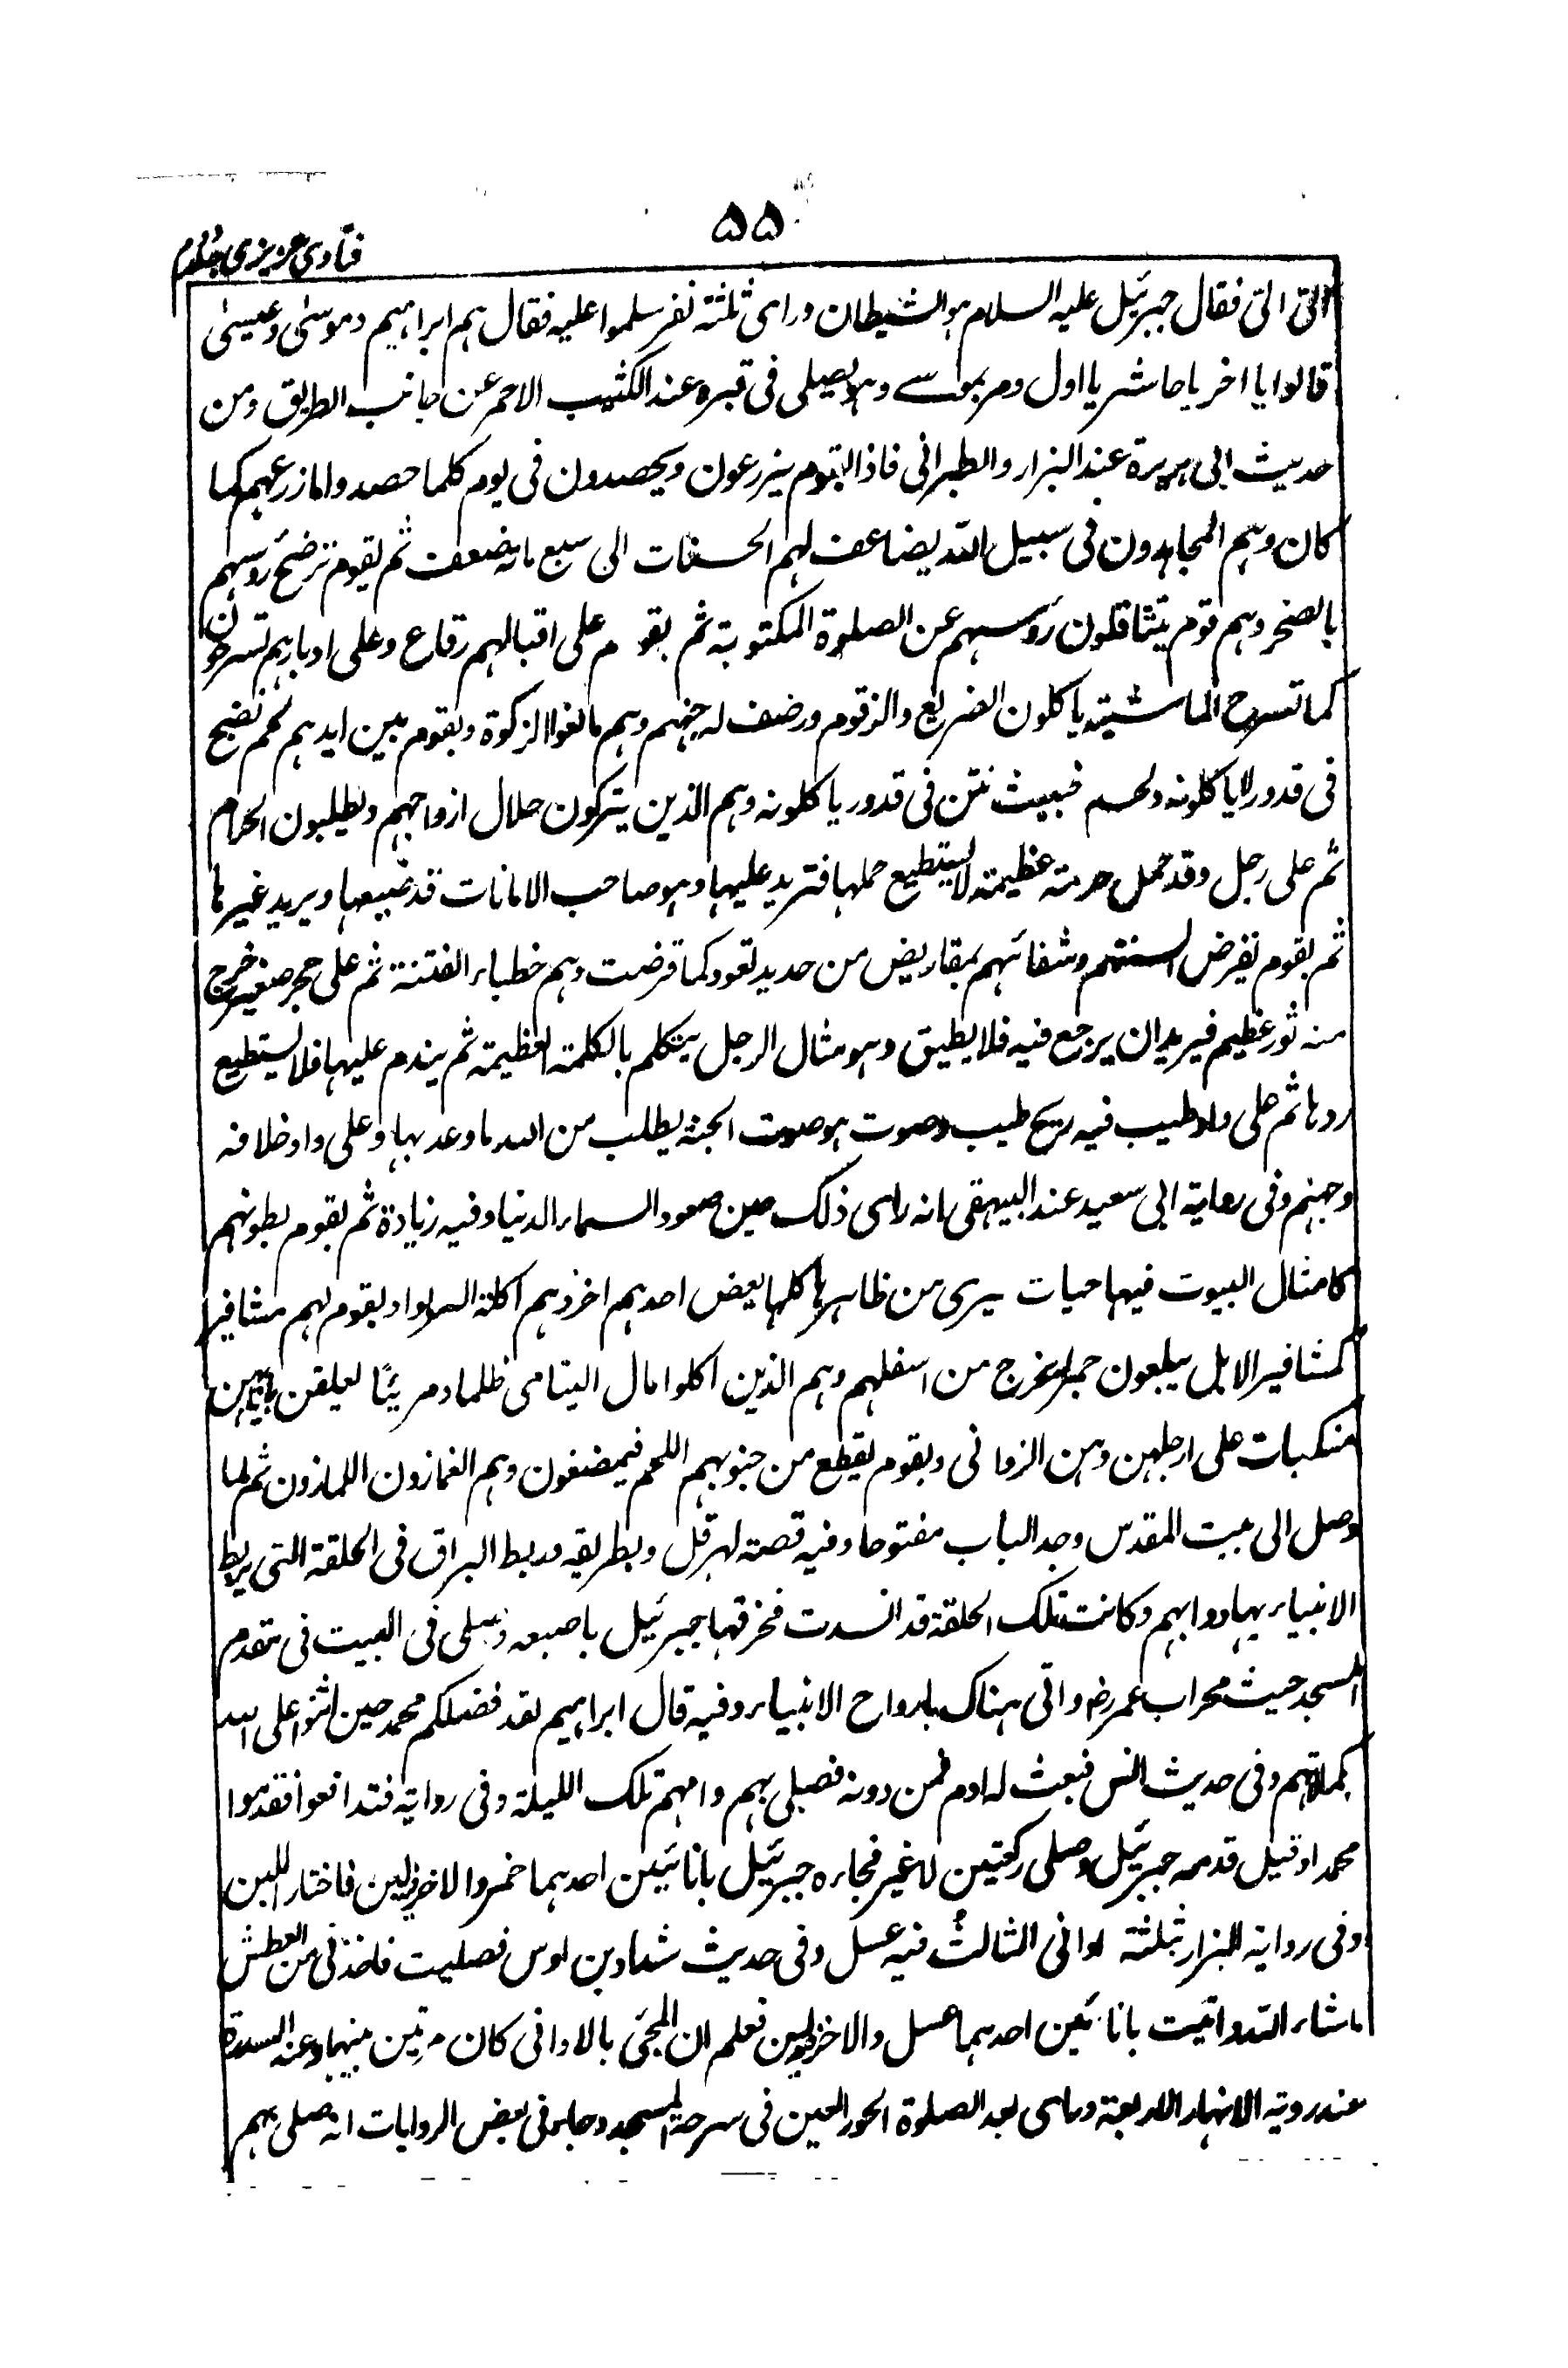 ۵۵
فتاوی عزیزی جلد دوم
التی التی فقال جبرئیل علیہ السلام ہو الشیطان ورای ثلثتہ نفر سلموا علیہ فقال ہم ابراہیم و موسیٰ و عیسیٰ
قالوا یا اخر یا حاشر یا اول ومر بموسے وہو یصلی فی قبرہ عند الکثیب الاحمر عن جانب الطریق ومن
حدیث ابی ہریرۃ عند البزار والطبرانی فاذا بقوم یزرعون ویحصدون فی یوم کلما حصدوا ما زرعہم کما
کان وہم المجاہدون فی سبیل اللہ یضاعف لہم الحسنات الی سبع مائۃ ضعف ثم لقوم ترضخ رؤسہم
بالصخر وہم قوم یتثاقلون رؤسہم عن الصلوۃ المکتوبۃ ثم بقوم علی اقبالہم رقاع وعلی ادبارہم تسرحون
کما تسرح الماشیتہ یاکلون الضریع والزقوم ورضف لہ جہنم وہم مانعوا الزکوۃ وبقوم بین ایدہم لحم نضیج
فی قدور لا یاکلونہ ولحم خبیث نتن فی قدور یاکلونہ وہم الذین یترکون حلال ازواجہم ویطلبون الحرام
ثم علی رجل وقد حمل حزمتہ عظیمتہ لا یستطیع حملہا فتزید علیہا وہو صاحب الامانات قد ضیعہا ویرید غیرہا
ثم بقوم تفرض السنتہم وشفائہم بمقاریض من حدید تعود کما قرضت وہم خطباء الفتنۃ ثم علی حجر صغیر خرج
منہ ثور عظیم فیرید ان یرجع فیہ فلا یطیق وہو مثال الرجل یتکلم بالکلمتہ العظیمتہ ثم یندم علیہا فلا یستطیع
ردہا ثم علی واد طیب فیہ ریح طیب وصوت ہو صوت الجنۃ یطلب من اللہ ما وعد بہا وعلی واد خلافہ
وجہنم وفی روایۃ ابی سعید عند البیہقی بانہ رای ذلک حین صعود السماء الدنیا وفیہ زیادۃ ثم بقوم بطونہم
کامثال البیوت فیہا حیات یری من ظاہر ہا کلہا بعض احدہم اخر وہم اکلۃ الربوا وبقوم لہم مشافیر
کمشافیر الابل یبلعون جمرا یخرج من اسفلہم وہم الذین اکلوا مال الیتامی ظلما ومر بئنا لعلقن بثدیہن
منکبات علی ارجلہن وہن الزوانی وبقوم یقطع من جنوبہم اللحم فیمضغون وہم الغمازون اللمازون ثم لما
وصل الی بیت المقدس وجد الباب مفتوحا وفیہ قصتہ لہرقل وبطریقہ وربط البراق فی الحلقۃ التی یربط
الانبیاء بہا دوابہم وکانت تلک الحلقۃ قد انسدت فخرقہا جبرئیل باصبعہ وصلی فی البیت فی مقدم
المسجد حیث محراب عمر رض واتی ہناک بارواح الانبیاء وفیہ قال ابراہیم لقد فضلکم محمد حین اثنوا علی اللہ
کملائہم وفی حدیث انس فبعث لہ ادم فمن دونہ فصلی بہم وامہم تلک اللیلۃ وفی روایۃ فتدافعوا فقدموا
محمدا وقیل قدمہ جبرئیل وصلی رکعتین لا غیر فجاءہ جبرئیل باناءئین احدہما خمر والاخر لبن فاختار اللبن
وفی روایۃ البزار ثلثتہ اوانی الثالث فیہ عسل وفی حدیث شداد بن اوس فصلیت فاخذنی من العطش
ماشاء اللہ واتیت باناءئین احدہما عسل والاخر لبن فعلم ان المجئی بالاوانی کان مرتین منہما وعند السدرۃ
عند رویۃ الانہار الاربعۃ ورای بعد الصلوۃ الحور العین فی سرحۃ المسجد وجاء فی بعض الروایات انہ صلی بہم